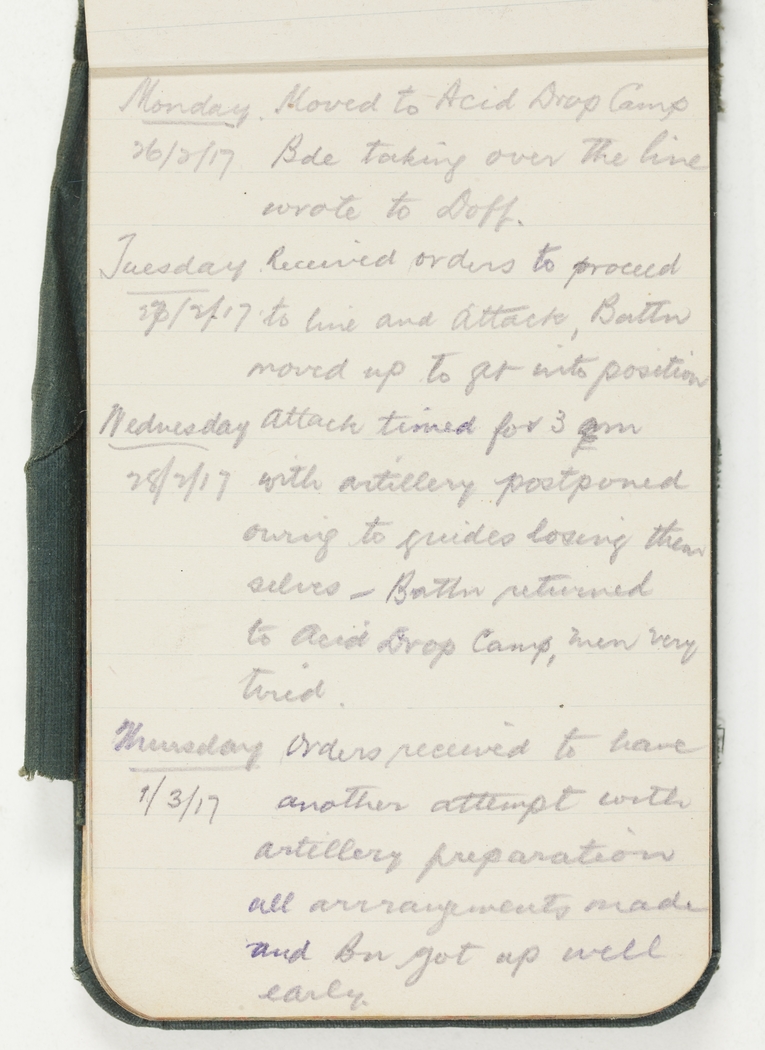 Monday. Moved to Acid Drop Camp
26/2/17 Bde taking over the line
wrote to Doff.
Tuesday Received orders to proceed
27/2/17 to line and attack, Battn
moved up to get into position
Wednesday Attack timed for 3 am
28/2/17 with artillery postponed
owing to guides losing them
selves – Battn returned
to Acid Drop Camp, men very
tired.
Thursday Orders received to have
1/3/17 another attempt with
artillery preparation
all arrrangements made
and Bn got up well
early.